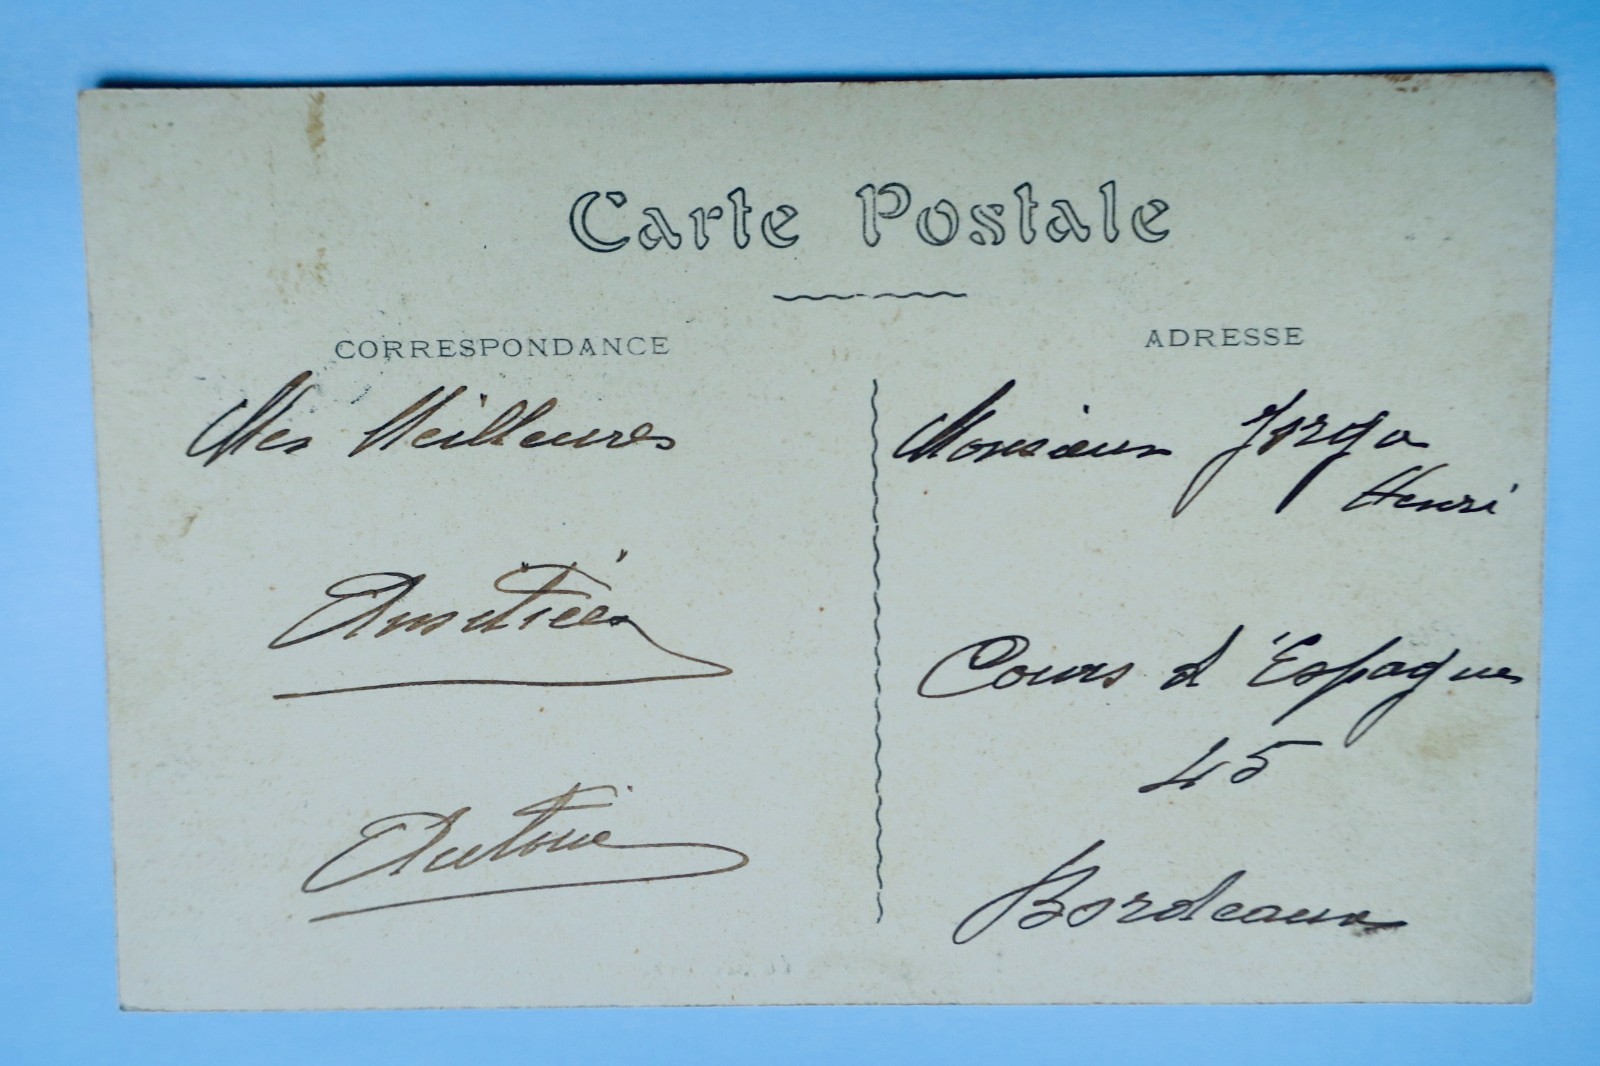 Carte Postale
CORRESPONDANCE
Mes Meilleures
Amitiées
Antoine
ADRESSE
Monsieur
Henri
Cours d'Espagne
45
Bordeaux